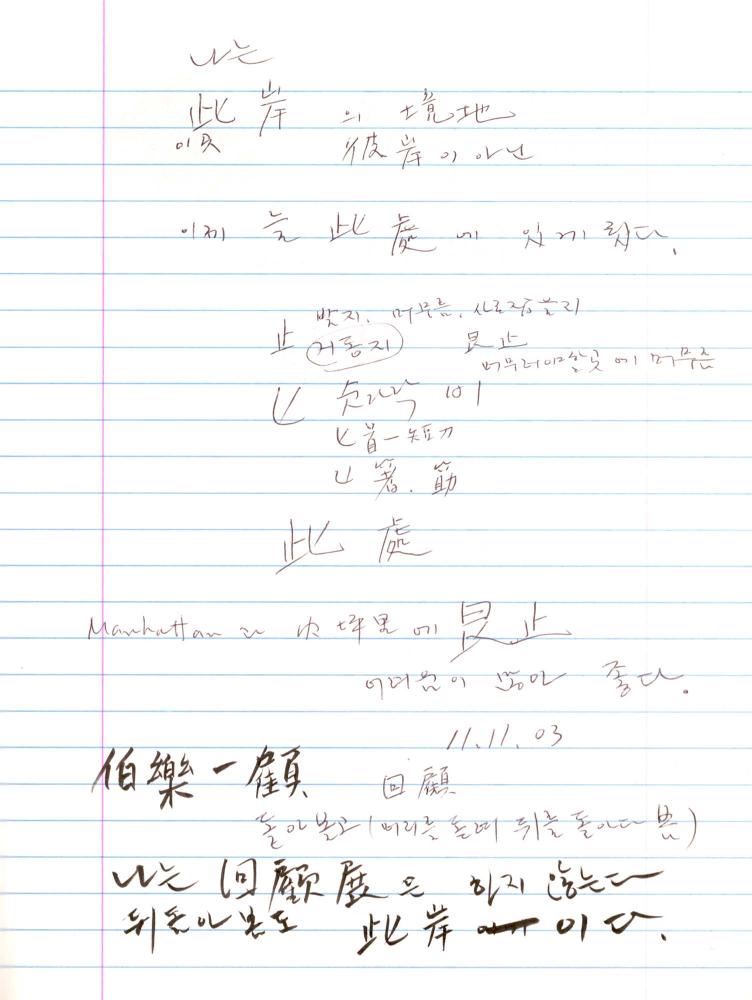 나는
此岸의 境地
이곳 彼岸이 아닌
이제는 此處에 있게 됬다.
止 받지. 머무름.
거동지 艮止
머무러야할곳에 머무름
匕 숫가락 비
匕首一短刀
匕 箸. 筋
此處
Manhattan과 內坪里에 艮止
좋다.
11.11.03
伯樂一顧 回顧
돌아보고 (머리를 돌려 뒤를 돌아다 봄)
나는 回顧展은 하지 않는다
뒤돌아봄도 此岸이다.